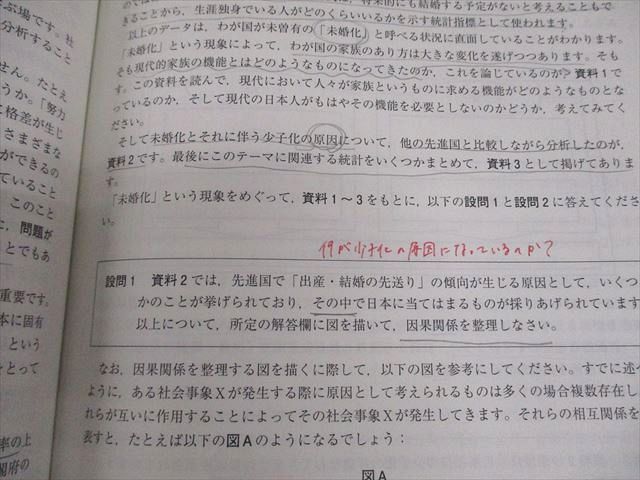 ぶ場です。社
分析すること
せん。たとえ
うか。「努力
に格差が生じ
さまざまな
ができるの
ていること
このこと
、問題が
とでもあ
重要です。
本に固有
という
をとって
率の上
閣府の
将来的にも結婚する予定がないと考えることもで
きることから、生涯独身でいる人がどのくらいいるかを示す統計指標として使われます。
以上のデータは、わが国が未曾有の「未婚化」と呼べる状況に直面していることがわかります。
「未婚化」という現象によって、わが国の家族のあり方は大きな変化を遂げつつあります。そも
そも現代的家族の機能とはどのようなものになってきたのか、これを論じているのが資料1で
す。この資料を読んで、現代において人々が家族というものに求める機能がどのようなものとな
っているのか、そして現代の日本人がもはやその機能を必要としないのかどうか、考えてみてく
ださい。
そして未婚化とそれに伴う少子化の原因について、他の先進国と比較しながら分析したのが、
資料2です。最後にこのテーマに関連する統計をいくつかまとめて、資料3として掲げてありま
す。
「未婚化」という現象をめぐって、資料1～3をもとに、以下の設問1と設問2に答えてくださ
い。
何が少子化の原因になっているのか？
設問1 資料2では、先進国で「出産・結婚の先送り」の傾向が生じる原因として、いくつ
かのことが挙げられており、その中で日本に当てはまるものが採りあげられています
以上について、所定の解答欄に図を描いて、因果関係を整理しなさい。
なお、因果関係を整理する図を描くに際して、以下の図を参考にしてください。すでに述べ
ように、ある社会事象Xが発生する際に原因として考えられるものは多くの場合複数存在し
れらが互いに作用することによってその社会事象Xが発生してきます。それらの相互関係を
表すと、たとえば以下の図Aのようになるでしょう：
図A